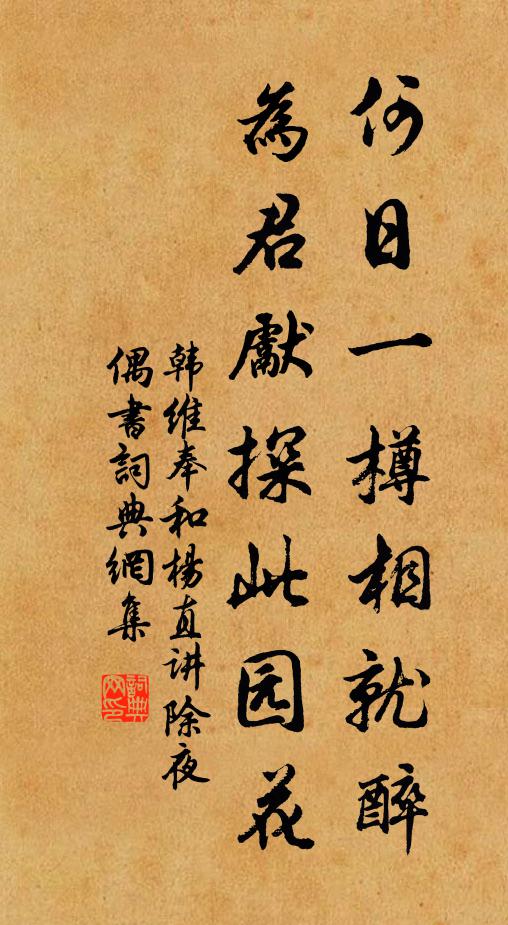 何日一樽相就醉
為君獻探此园花
韩维奉和楊直讲除夜
偶書詞典網集
詞典网印